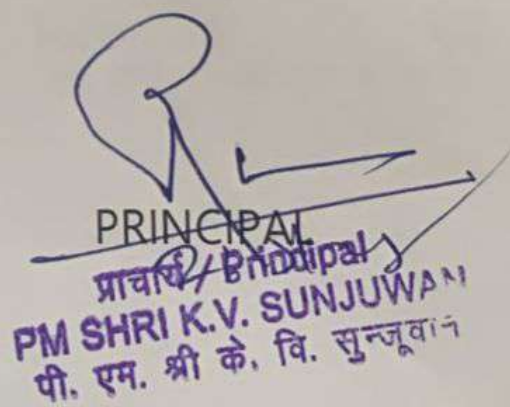 PRINCIPAL
प्राचार्य / Principal
PM SHRI K.V. SUNJUWAN
पी. एम. श्री के. वि. सुन्जूवान